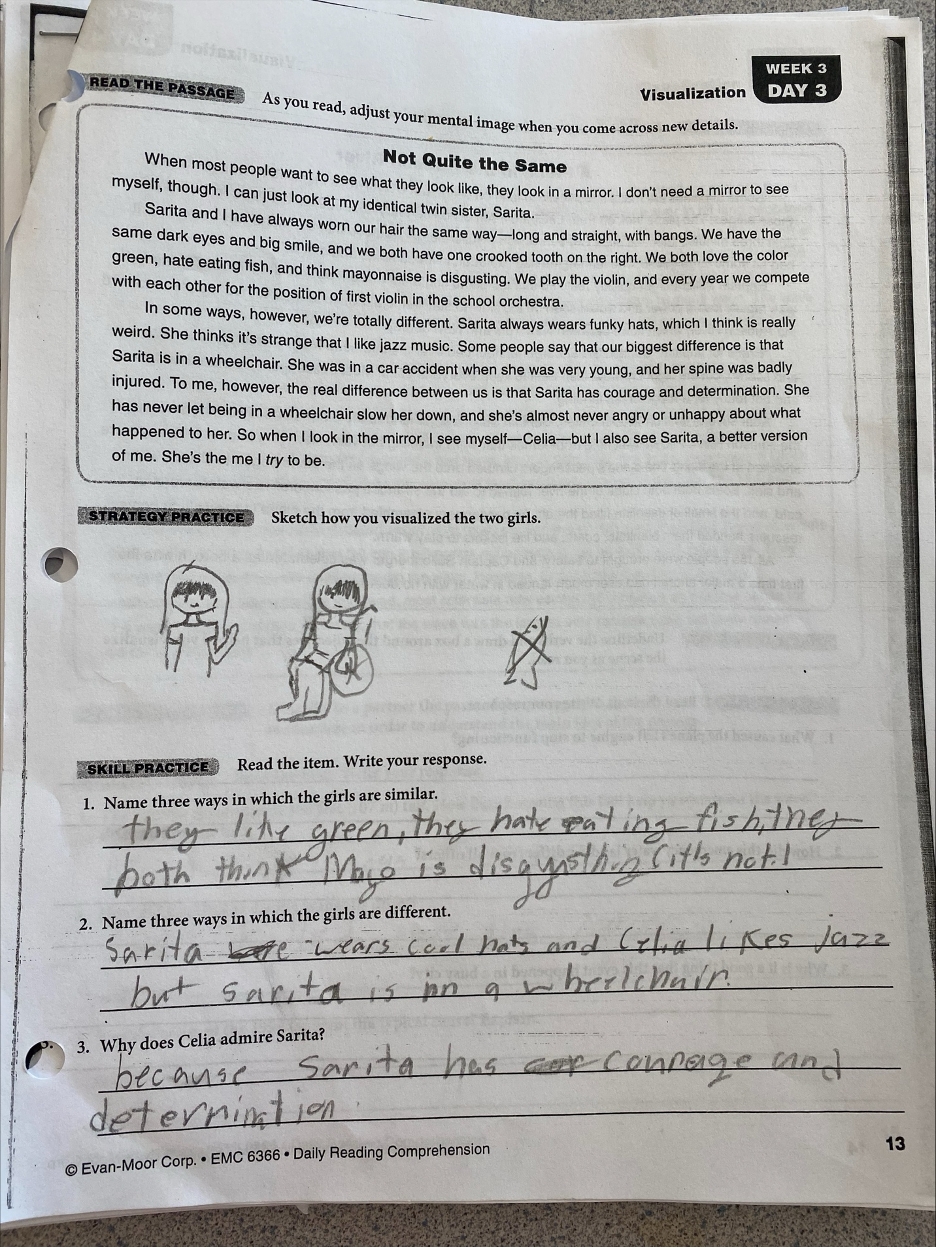 WEEK 3
Visualization DAY 3
READ THE PASSAGE As you read, adjust your mental image when you come across new details.
Not Quite the Same
When most people want to see what they look like, they look in a mirror. I don't need a mirror to see
myself, though. I can just look at my identical twin sister, Sarita.
Sarita and I have always worn our hair the same way—long and straight, with bangs. We have the
same dark eyes and big smile, and we both have one crooked tooth on the right. We both love the color
green, hate eating fish, and think mayonnaise is disgusting. We play the violin, and every year we compete
with each other for the position of first violin in the school orchestra.
In some ways, however, we're totally different. Sarita always wears funky hats, which I think is really
weird. She thinks it's strange that I like jazz music. Some people say that our biggest difference is that
Sarita is in a wheelchair. She was in a car accident when she was very young, and her spine was badly
injured. To me, however, the real difference between us is that Sarita has courage and determination. She
has never let being in a wheelchair slow her down, and she's almost never angry or unhappy about what
happened to her. So when I look in the mirror, I see myself—Celia—but I also see Sarita, a better version
of me. She's the me I try to be.
STRATEGY PRACTICE Sketch how you visualized the two girls.
SKILL PRACTICE Read the item. Write your response.
1. Name three ways in which the girls are similar.
they like green, they hate eating fish, they
both think Mayo is disgusthing (it's not!
2. Name three ways in which the girls are different.
Sarita wears cool hats and Celia likes jazz
but sarita is in a wheelchair.
3. Why does Celia admire Sarita?
because Sarita has courage and
determination
© Evan-Moor Corp. • EMC 6366 • Daily Reading Comprehension
13